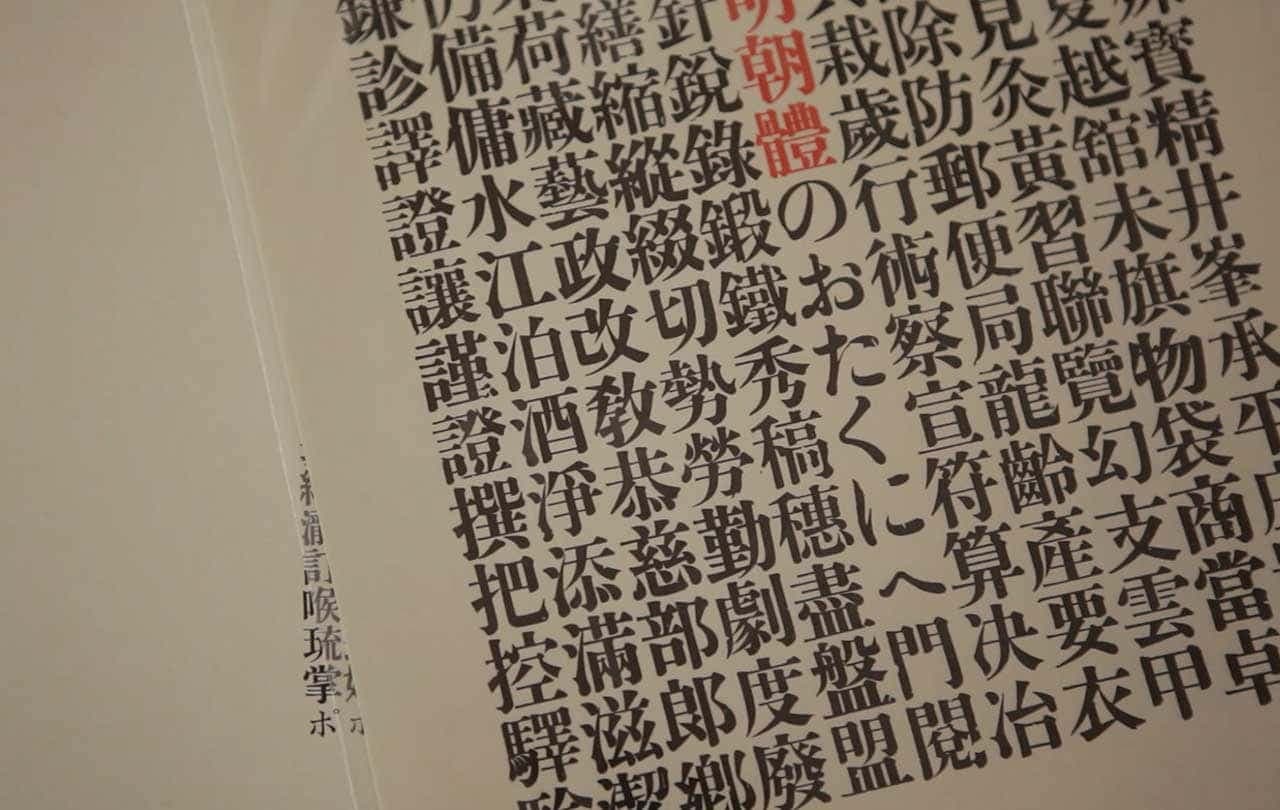 寶精井峯承平
越舘未旗物袋商當卓
見灸黃習聯覽幻支雲甲
除防郵便局龍齡產要衣
栽歲行術察宣符算決冶
明朝體のおたくにへ門閱
針銳錄鍛鐵秀稿穗盡盤盟
繕縮縱綴切勢勞勤劇度廢
荷藏藝政改敎恭慈部郎鄉
備傭水江泊酒淨添滿滋潔
鎌診譯證讓謹證撰把控驛
訂喉琉掌ポ